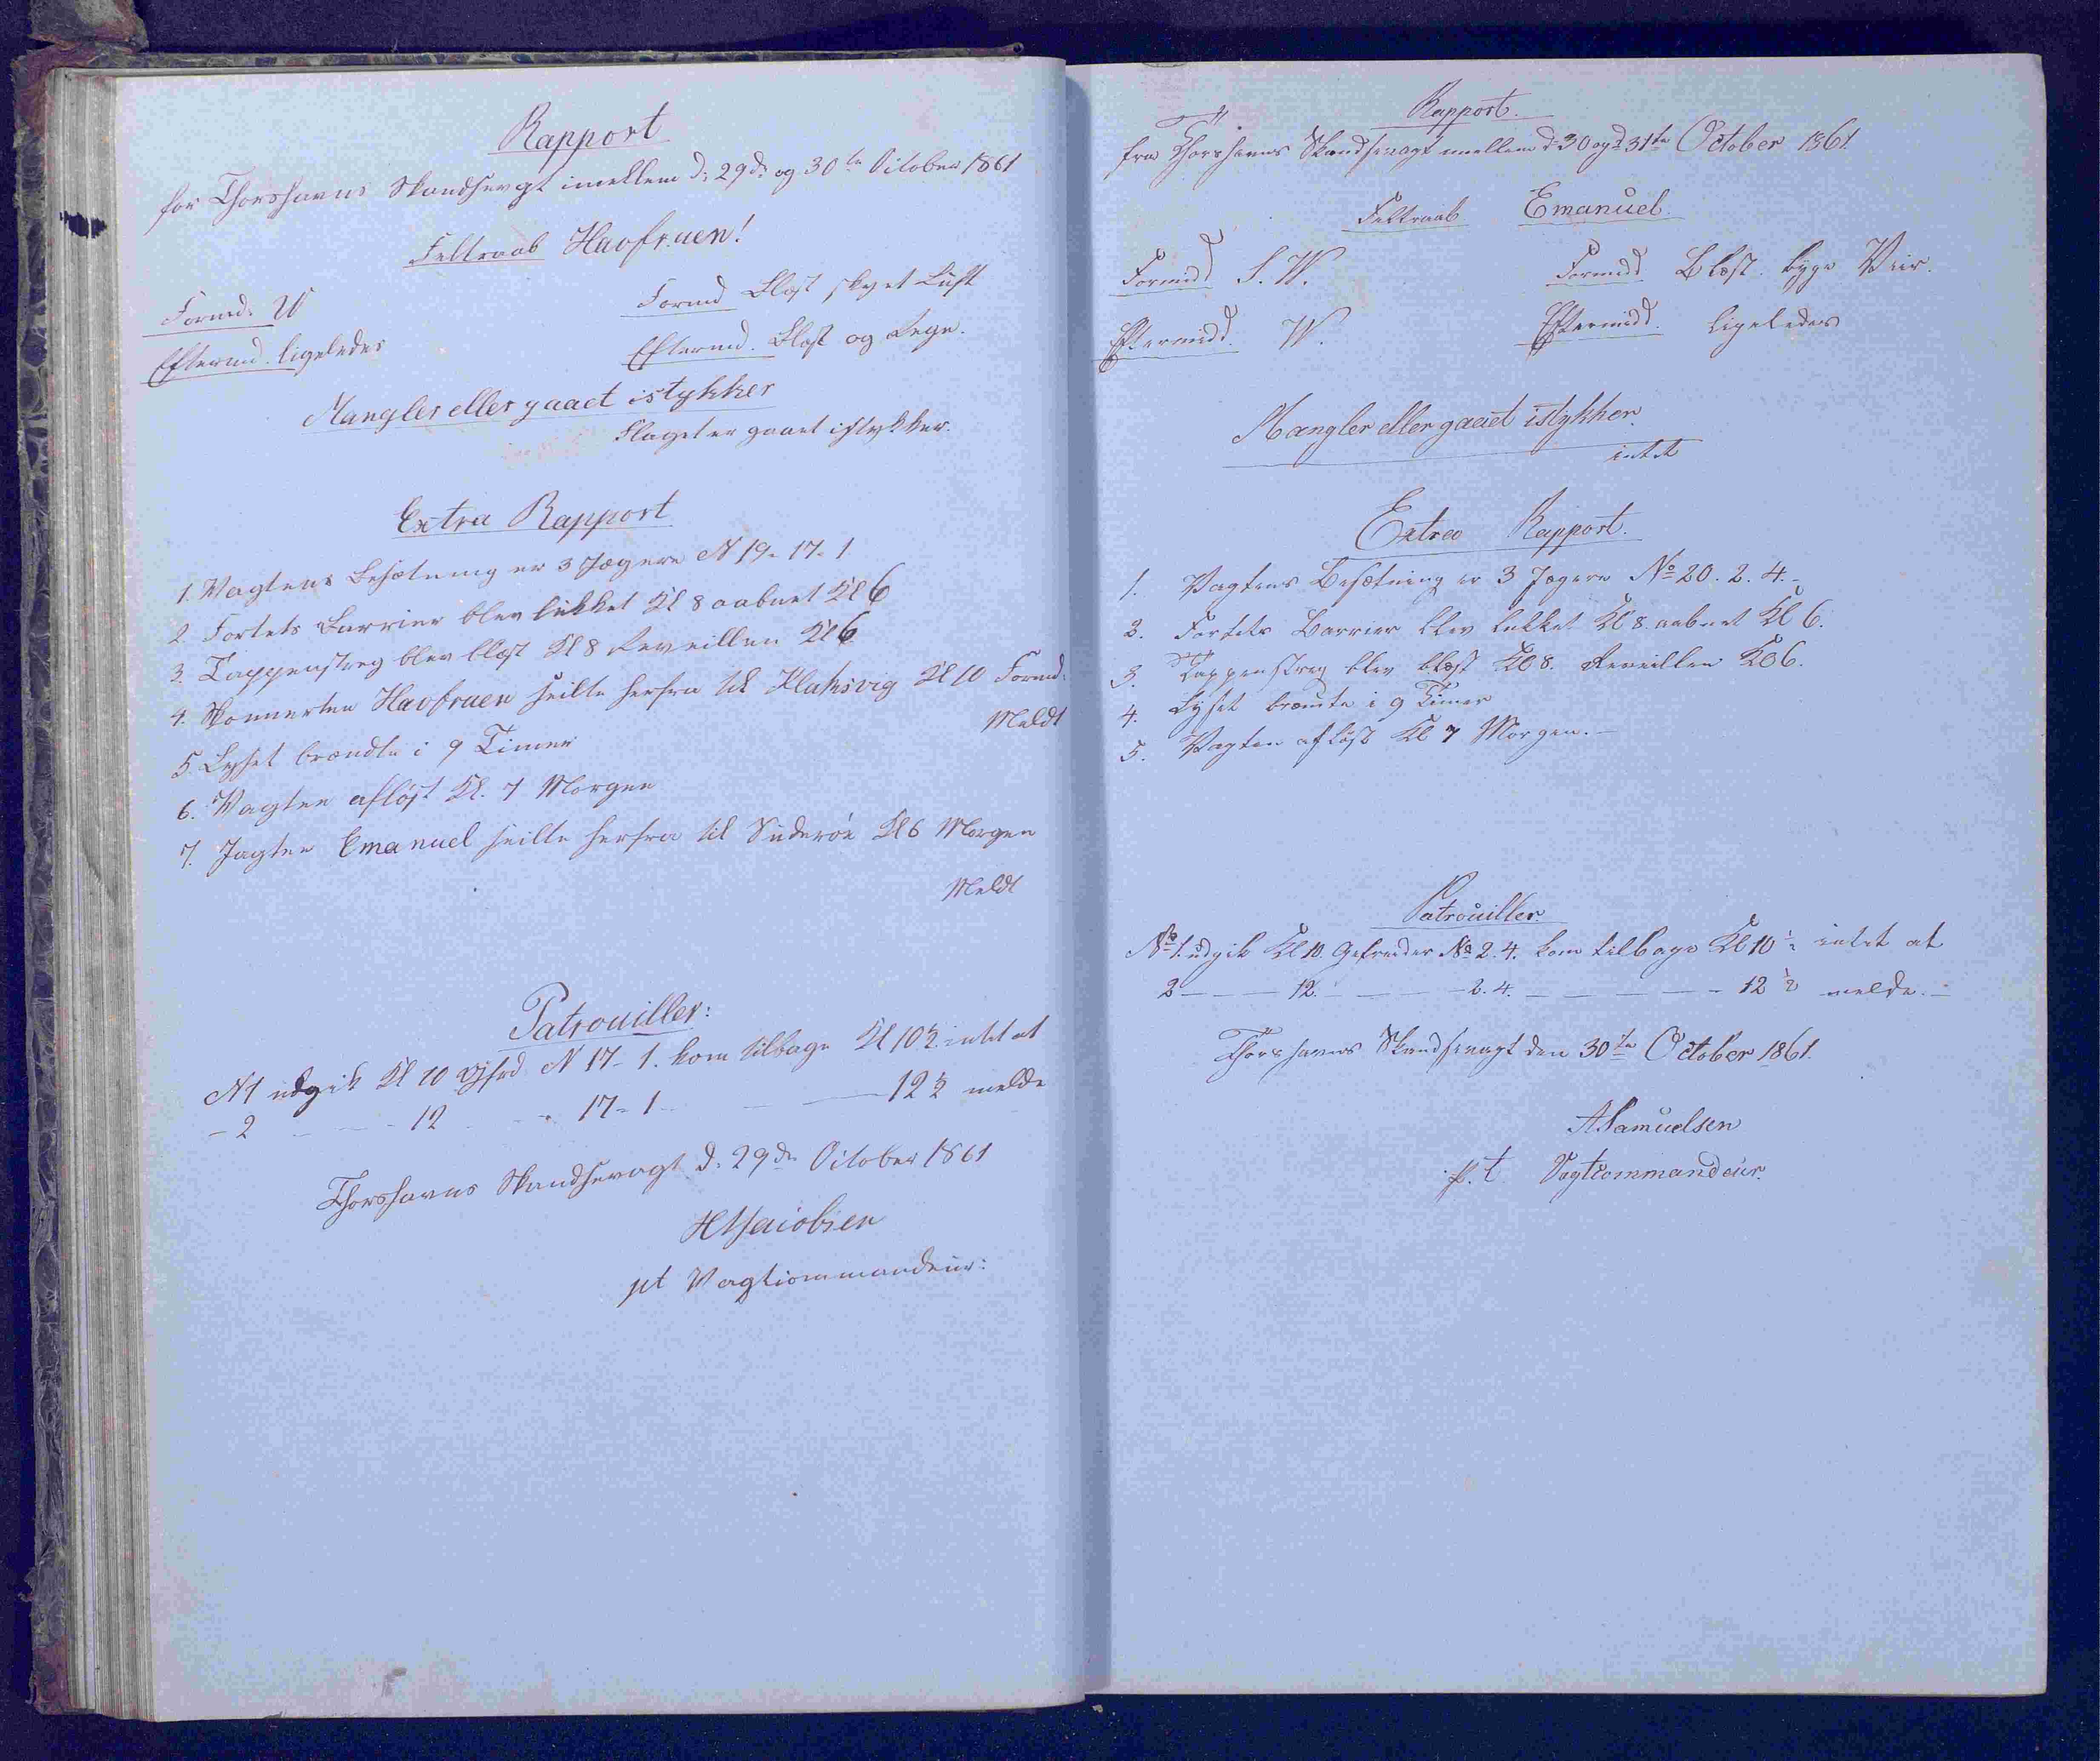 Rapport
for Thorshavns Skandsevagt imellem d: 29de og 30te October 1861
Feltraab Havfruen!
Formd. W
Formd Blæst skyet Luft
Eftermd. ligeledes
Eftermd. Blæst og Regn.
Mangler eller gaaet istykker
Flaget er gaaet istykker.
Extra Rapport
1. Vagtens Besætning er 3 Jægere N 19- 17- 1
2. Fortets Barrier blev lukket Kl 8 aabnet Kl 6
3. Tappenstreg blev blæst Kl 8 Reveillen Kl 6
4. Skonnerten Havfruen seilte herfra til Klaksvig Kl 10 Formd.
Meldt
5 Lyset brændte i 9 Timer
6. Vagten afløst Kl. 7 Morgen
7. Jagten Emanuel seilte herfra til Suderøe Kl 6 Morgen
Meldt
Patrouiller:
N 1 udgik Kl 10 Gfrd N 17- 1. kom tilbage Kl 10½ intet at
- 2 - - - 12 - - 17- 1 - - - 12½ melde
Thorshavns Skandsevagt d. 29de October 1861
HJacobsen
pt Vagtcommandeur:
Rapport.
fra Thorshavns Skandsevagt mellem d 30 og d 31te October 1861
Feltraab Emanuel.
Formidd S. W.
Formidd Blæst. byge Veir.
Eftermidd. W.
Eftermidd. ligeledes
Mangler eller gaaet istykker.
intet
Extra Rapport.
1. Vagtens Besætning er 3 Jægere No 20. 2. 4. -
2. Fortets Barrier blev lukket Kl 8. aabnet Kl 6.
3. Tappenstreg blev blæst Kl 8. Reveillen Kl 6.
4. Lyset brændte i 9 Timer
5. Vagten afløst Kl 7 Morgen. -
Patrouiller.
No 1. udgik Kl 10. Gefreider No 2. 4. kom tilbage Kl 10½ intet at
2 - - - 12. - - - 2. 4. - - - - 12½ melde. -
Thorshavns Skandsevagt den 30te October 1861.
ASamuelsen
p. t. Vagtcommandeur.